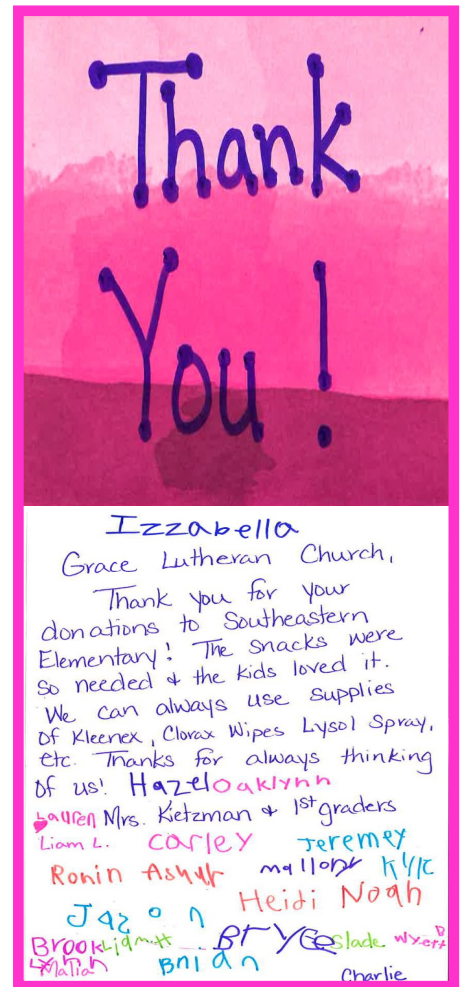 Thank
You!
Izzabella
Grace Lutheran Church,
Thank you for your
donations to Southeastern
Elementary! The snacks were
so needed & the kids loved it.
We can always use supplies
of Kleenex, Clorax Wipes Lysol Spray,
etc. Thanks for always thinking
of us! Hazel Oaklynn
Lauren Mrs. Kietzman & 1st graders
Liam L. Carley Jeremey
Ronin Asher mallory Kylie
Heidi Noah
Jason
Brook Liam H Bryce Slade Wyett B
Malia Brian
Charlie